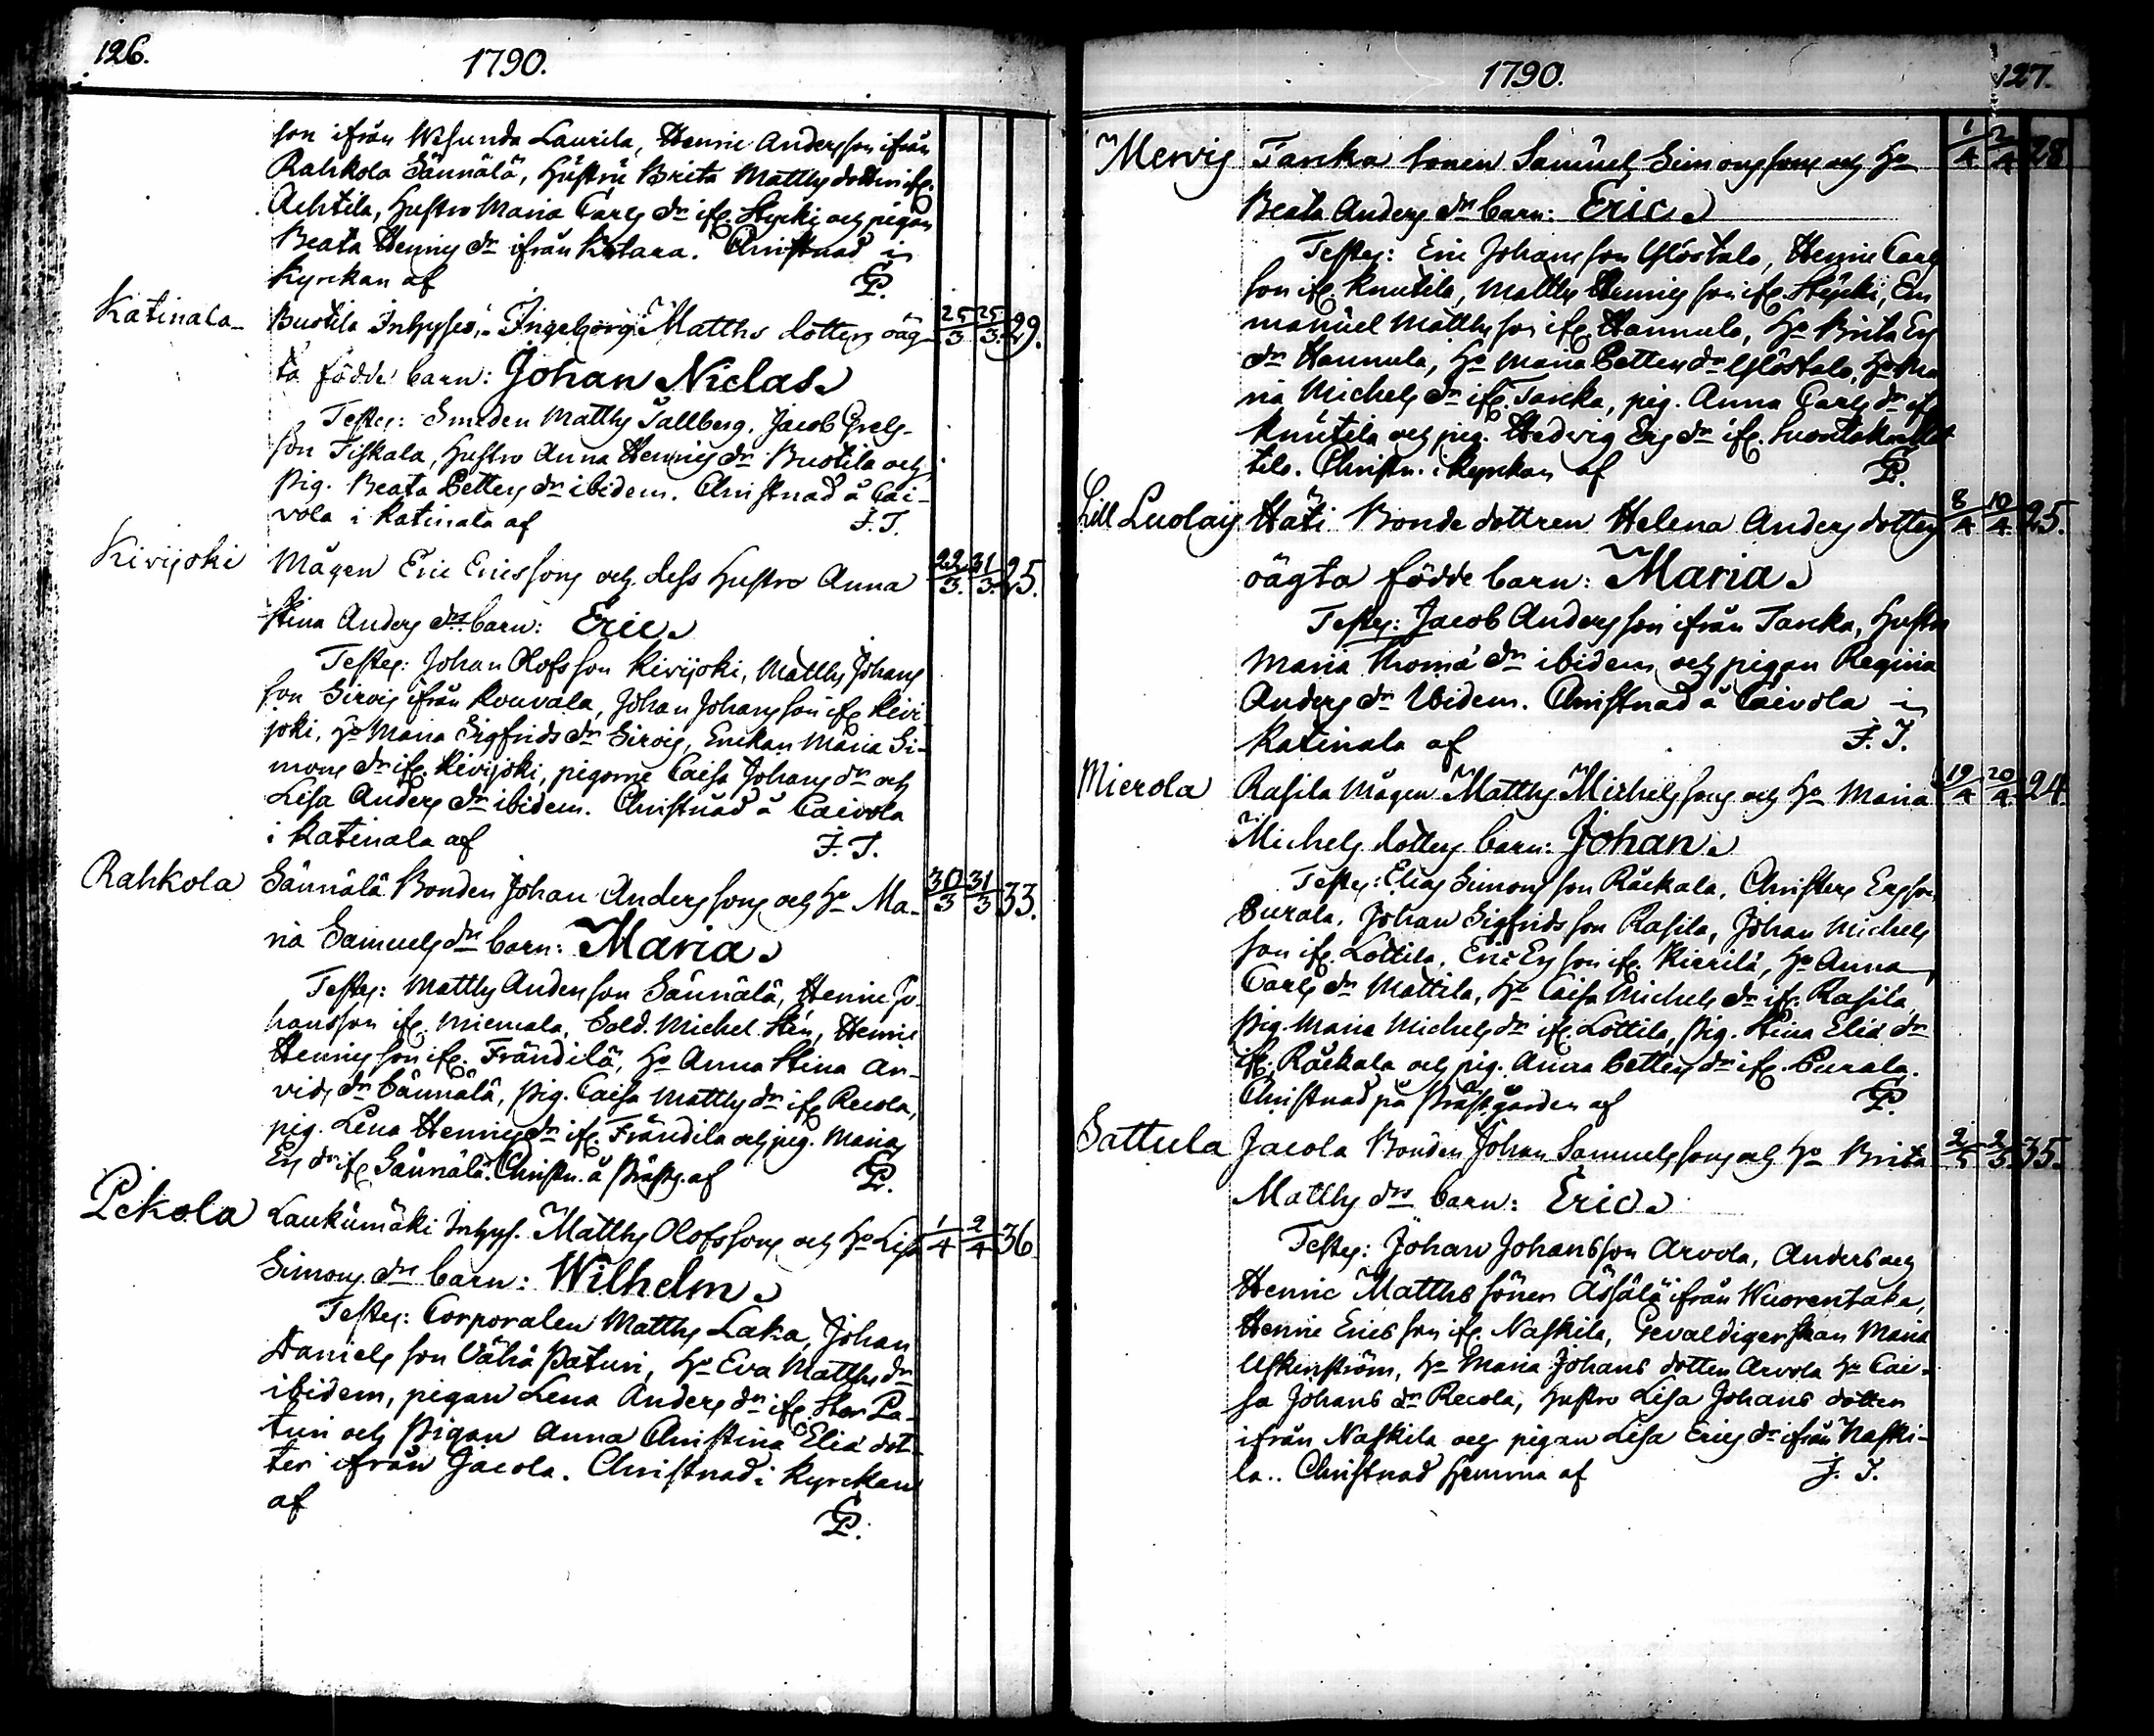 126.
1790.
son ifrån Wesunda Laurila, Henric Andersson ifrån
Rahkola Sännälä, Hustru Brita Matths dotter ifr.
Achtila, Hustro Maria Carls dr ifr. Stycki och pigan
Beata Henrics dr ifrån Ketara. Christnad i
Kyrckan af CP.
Katinala Buotila Inhyses. Ingeborg Matths dotters oäg- 25/3 25/3 29.
ta födde barn: Johan Niclas
Testes: Smeden Matths Tallberg, Jacob Grels-
son Tiskala, Hustro Anna Henrics dr Buotila och
Pig. Beata Petters dr ibidem. Christnad å Cai-
vola i Katinala af J.T.
Kivijoki Mågen Eric Ericssons och dess Hustro Anna 22/3. 31/3. 25.
Stina Anders drs barn: Eric
Testes: Johan Olofsson Kivijoki, Matths Johans
son Sirois ifrån Kouvala, Johan Johansson ifr. Kivi-
joki, Ho Maria Sigfrids dr Sirois, Enckan Maria Si-
mons dr ifr. Kivijoki, pigorne Caisa Johans dr och
Lisa Anders dr ibidem. Christnad å Caivola
i Katinala af J.T.
Rahkola Sännälä Bonden Johan Anderssons och Ho Ma- 30/3 31/3 33.
ria Samuels drs barn: Maria
Testes: Matths Andersson Sännälä, Henric Jo-
hansson ifr. Miemala, Sold. Michel Sten, Henric
Henricsson ifr. Frändilä, Ho Anna Stina Ar-
vids dr Sännälä, Pig. Caisa Matths dr ifr. Recola,
pig. Lena Henrics dr ifr. Frändila och pig. Maria
Ers dr ifr. Sännälä. Christn. å Prästg. af CP.
Pekola Laukumäki Inhys. Matths Olofssons och Ho Lisa 1/4 2/4 36.
Simons drs barn: Wilhelm
Testes: Corporalen Matths Laka, Johan
Daniels son Vähä Paturi, Ho Eva Matths dr
ibidem, pigan Lena Anders dr ifr. Stor Pa-
turi och Pigan Anna Christina Eliæ dot-
ter ifrån Jacola. Christnad i Kyrckan
af CP.
1790.
127.
Mervis Tancka Sonen Samuel Simonssons och Ho 1/4 2/4 28.
Beata Anders drs barn: Eric
Testes: Eric Johansson Uotala, Henric Carls
son ifr. Knutila, Matths Henricsson ifr. Stycki, Em
manuel Matthsson ifr. Hannula, Ho Brita Ers
dr Hannula, Ho Maria Petters dr Uotala, Ho Ma
ria Michels dr ifr. Tancka, pig. Anna Carls dr ifr.
Knutila och pig. Hedvig Ers dr ifr.
tila. Christn. i Kyrckan af CP.
Lill Luolais Häti Bonde dottren Helena Anders dotters 8/4 10/4. 25.
oägta födde barn: Maria
Testes: Jacob Andersson ifrån Tancka, Hustro
Maria Thomæ dr ibidem och pigan Regina
Anders dr Ibidem. Christnad å Caivola i
Katinala af J.T.
Mierola Rasila Mågen Matths Michelssons och Ho Maria 19/4 20/4. 24.
Michels dotters barn: Johan
Testes: Elias Simonsson Råckala, Christer Ersson
Purala, Johan Sigfridsson Rasila, Johan Michels
son ifr. Lottila, Eric Ersson ifr. Kierilä, Ho Anna
Carls dr Mattila, Ho Caisa Michels dr ifr. Rasila,
Pig. Maria Michels dr ifr. Lottila, Pig. Stina Eliæ dr
ifr. Råckala och pig. Anna Petters dr ifr. Purala.
Christnad på Prästgården af CP.
Sattula Jacola Bonden Johan Samuelssons och Ho Brita 2/5 2/5. 35.
Matths drs barn: Eric
Testes: Johan Johansson Arvola, Anders och
Henric Matths söner Ässälä ifrån Wuorentaka,
Henric Ericsson ifr. Naskila, Gevaldigerskan Maria
Uskenström, Ho Maria Johans dotter Arvola Ho Cai-
sa Johans dr Recola, Hustro Lisa Johans dotter
ifrån Naskila och pigan Lisa Erics dr ifrån Naski-
la.. Christnad Hemma af J.T.